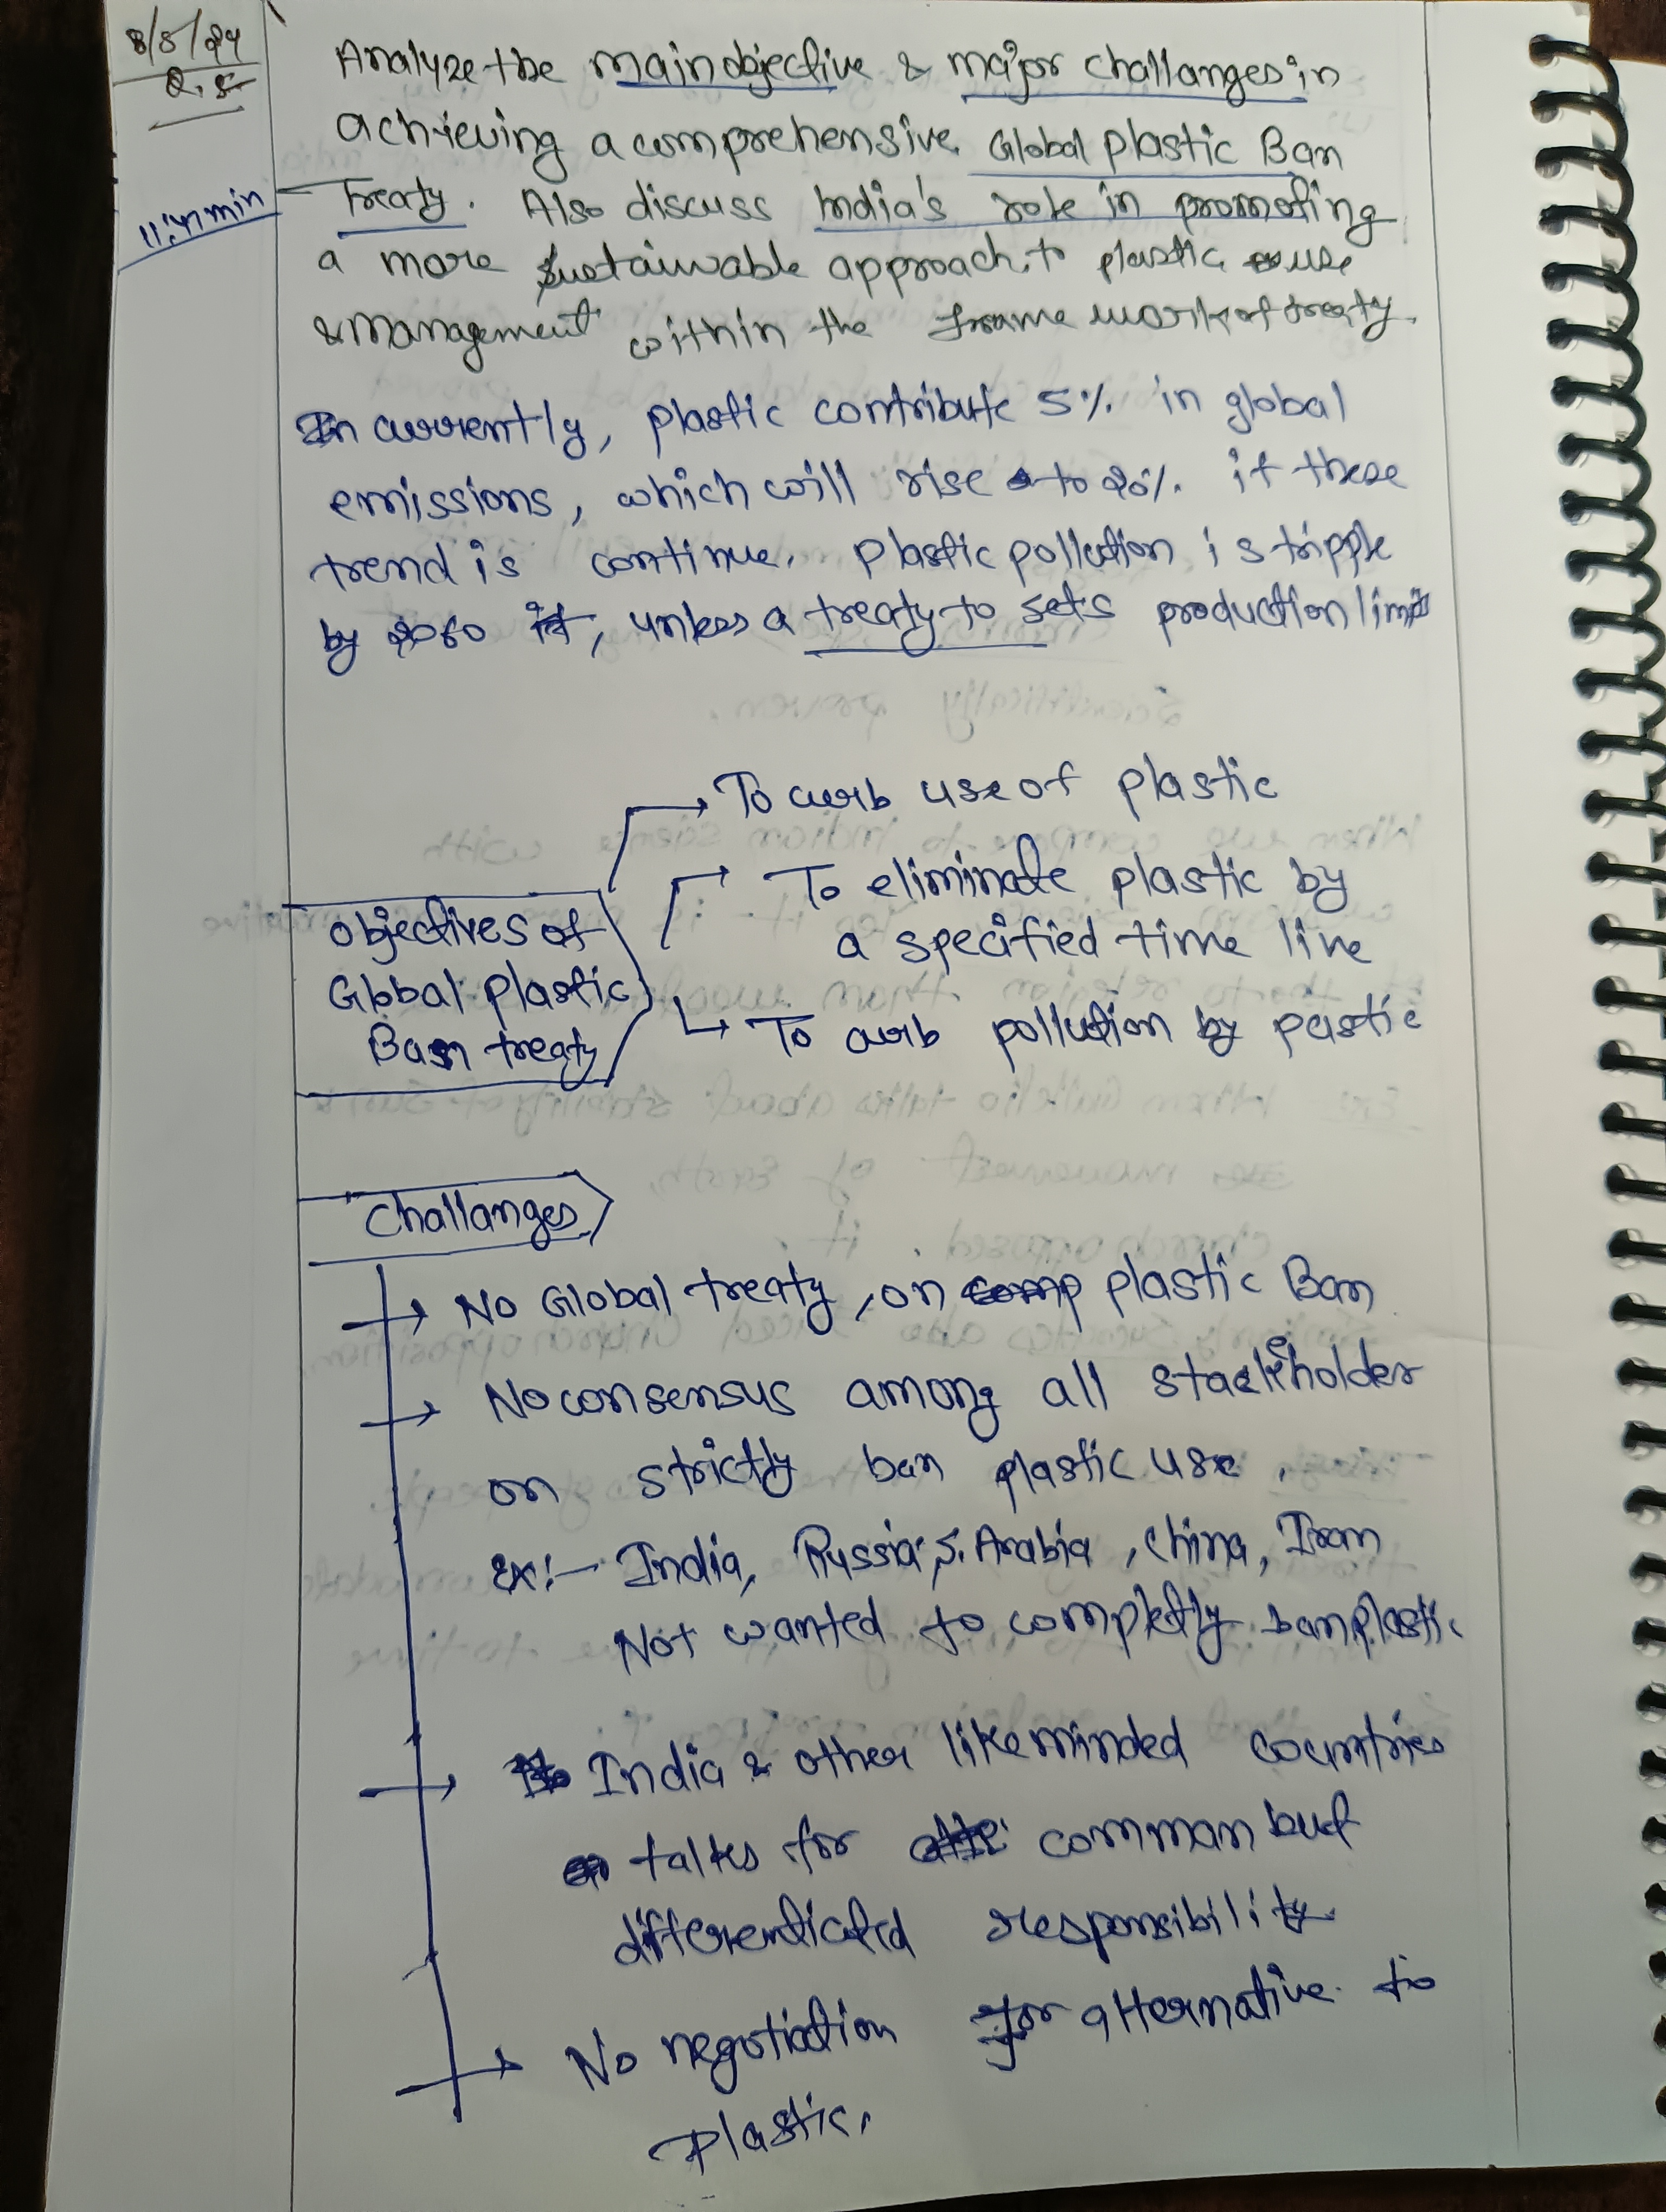 8/5/24
Q.5
11:47 min
Analyze the main objective & major challanges in
achieving a comprehensive Global plastic Ban
Treaty. Also discuss India's role in promoting
a more sustainable approach to plastic use
& management within the frame work of treaty.
In currently, plastic contribute 5% in global
emissions, which will rise to 20% if these
trend is continue. Plastic pollution is tripple
by 2060 it, unless a treaty to sets production limits
To curb use of plastic
To eliminate plastic by
a specified time line
Objectives of
Global plastic
Ban treaty
To curb pollution by pastic
Challanges
No Global treaty, on comp plastic Ban
No consensus among all stackeholder
on strictly ban plastic use.
ex:- India, Russia, S. Arabia, China, Iran
Not wanted to completly ban plastic
India & other like minded countries
talks for comman but
differenticated responsibility
No negotiation for alternative to
Plastic.